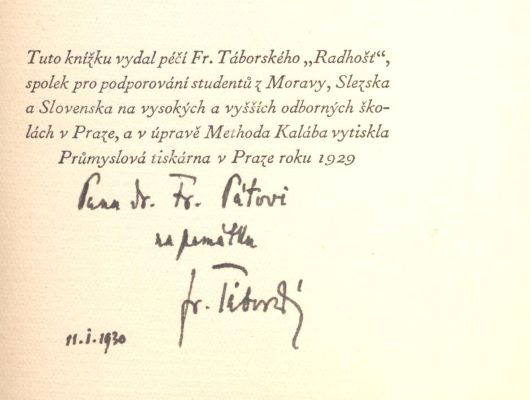 Tuto knížku vydal péčí Fr. Táborského „Radhošť“,
spolek pro podporování studentů z Moravy, Slezska
a Slovenska na vysokých a vyšších odborných ško-
lách v Praze, a v úpravě Methoda Kalába vytiskla
Průmyslová tiskárna v Praze roku 1929
Panu dr. Fr. Pátovi
na památku
Fr. Táborský
11.I.1930